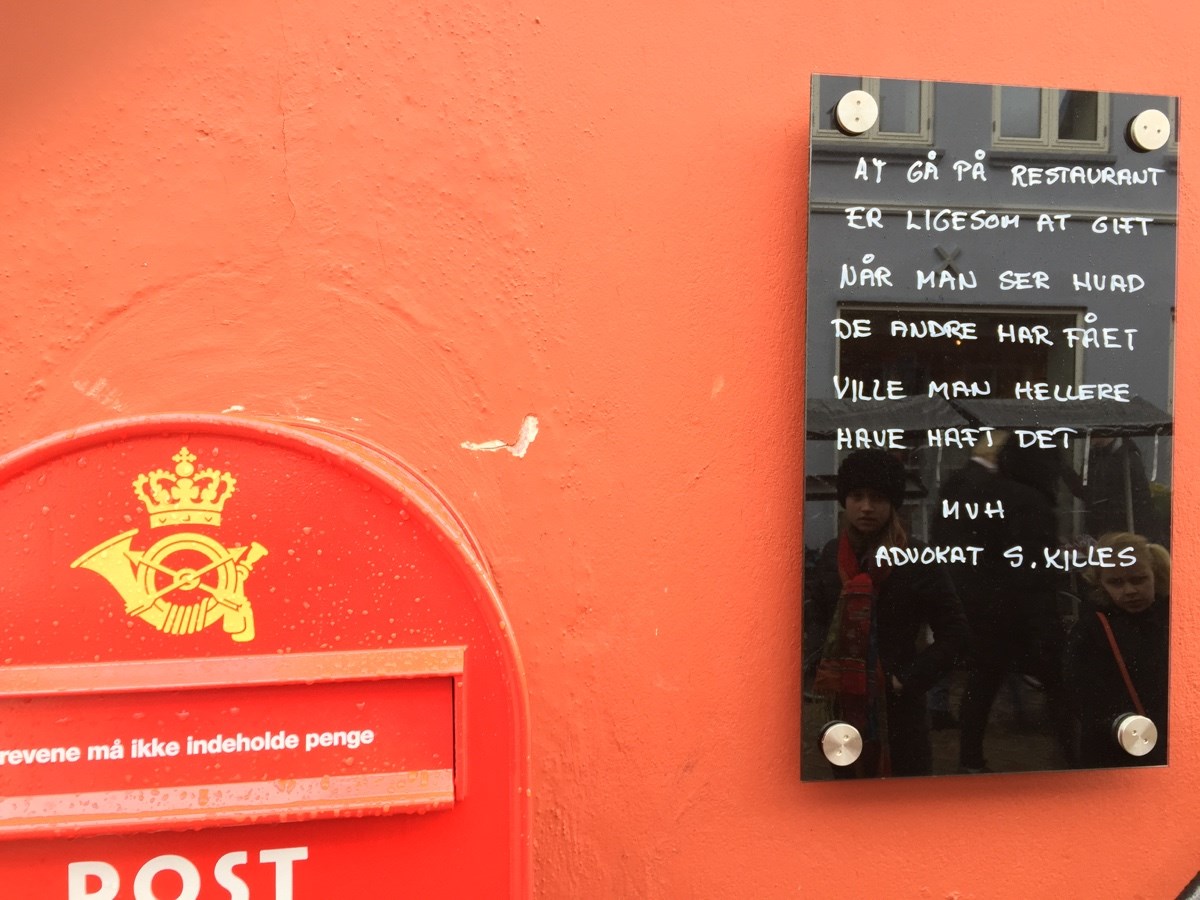 AT GÅ PÅ RESTAURANT
ER LIGESOM AT GIFT
NÅR MAN SER HVAD
DE ANDRE HAR FÅET
VILLE MAN HELLERE
HAVE HAFT DET
MVH
ADVOKAT S. KILLES
revene må ikke indeholde penge
POST